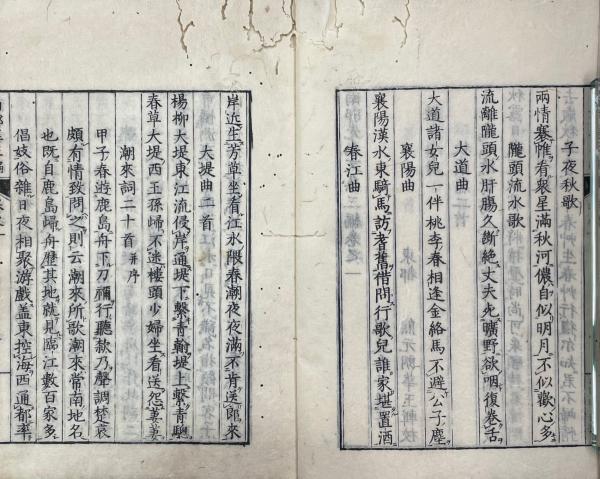 子夜秋歌
兩情褰帷看衆星滿秋河儂自似明月不似歡心多
隴頭流水歌
流離隴頭水肝腸久斷絶丈夫先曠野欲咽復卷舌
大道曲
大道諸女兒一伴桃李春相逢金絡馬不避公子塵
襄陽曲
襄陽漢水東騎馬訪耆舊借問行歌兒誰家堪置酒
春江曲
岸近生芳草坐看江水隈春潮夜夜滿不肯送郎來
大堤曲二首
楊柳大堤東江流侵岸通堤下繫青翰堤上繫青驄
春草大堤西王孫歸不迷樓頭少婦坐看送怨萋萋
潮來詞二十首并序
甲子春遊鹿島舟下刀禰行聽欸乃聲調楚哀
頗有情致問之則云潮來所歌潮來常南地名
也既自鹿島歸舟歷其地就見臨江數百家多
倡妓俗雜日夜相聚游戲蓋東控海西通都率